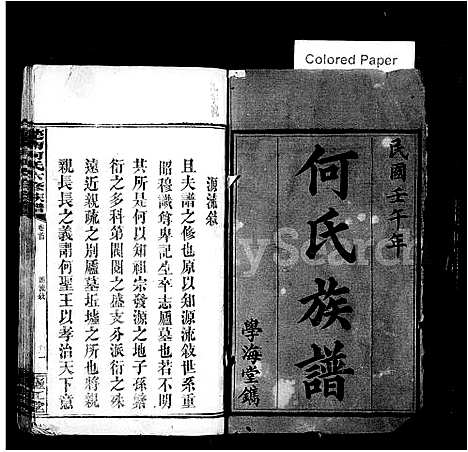 Colored Paper
民國壬午年
何氏族譜
學海堂鐫
源流敘
且夫譜之修也原以知源流敘世系重
昭穆識尊卑記生卒志廬墓也若不明
其所是何以知祖宗發源之地子孫繁
衍之多科第閥閱之盛支分派衍之殊
遠近親疏之別廬墓坵墟之所也將親
親長長之義謂何聖王以孝治天下意
卷首
源流敘